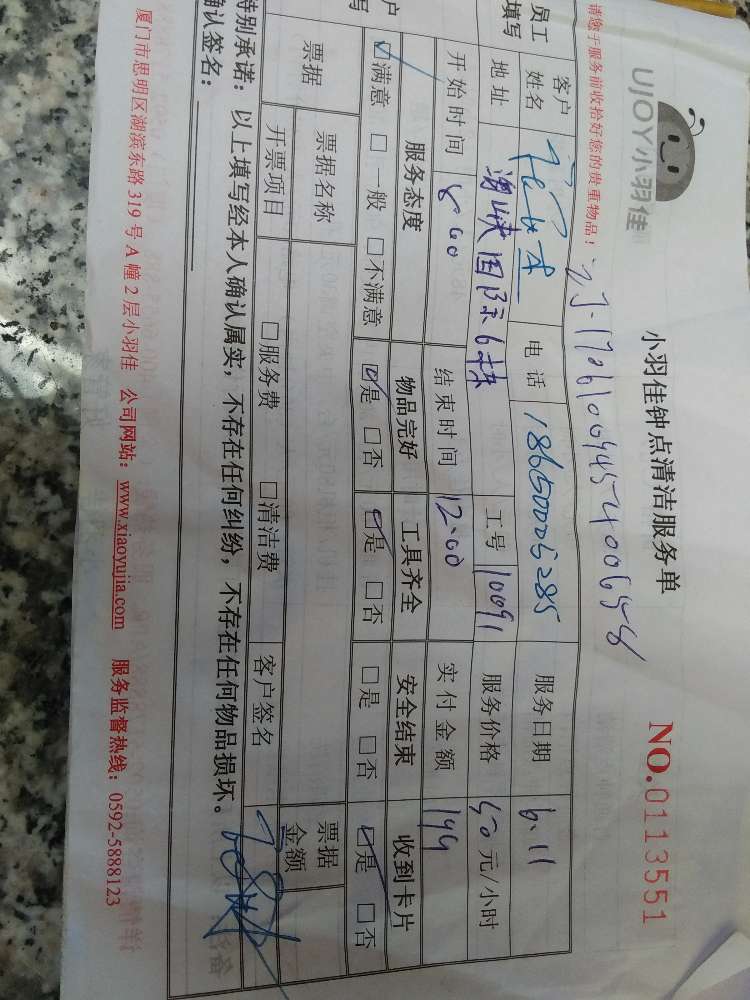 UJOY小羽佳
小羽佳钟点清洁服务单
NO.0113551
请您于服务前收拾好您的贵重物品！
员工填写 客户姓名 电话 18650005285 服务日期 6.11
地址 海峡国际6栋 工号 10091 服务价格 50 元/小时
开始时间 8:00 结束时间 12:00 实付金额 199
户 服务态度 物品完好 工具齐全 安全结束 收到卡片
写 ☑满意 □一般 □不满意 ☑是 □否 ☑是 □否 □是 □否 ☑是 □否
票据 票据名称 票据金额
开票项目 □服务费 □清洁费 客户签名
特别承诺：以上填写经本人确认属实，不存在任何纠纷，不存在任何物品损坏。
确认签名：
厦门市思明区湖滨东路 319 号 A 幢 2 层小羽佳 公司网站：www.xiaoyujia.com 服务监督热线：0592-5888123